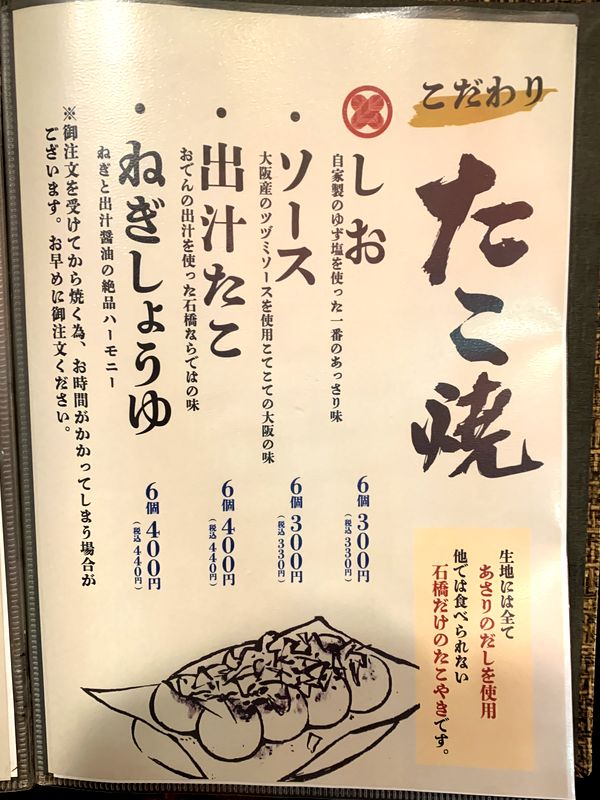 こだわり
たこ焼
生地には全て
あさりのだしを使用
他では食べられない
石橋だけのたこやきです。
しお
自家製のゆず塩を使った一番のあっさり味
6個 300円
(税込 330円)
・ソース
大阪産のツヅミソースを使用こてこての大阪の味
6個 300円
(税込 330円)
・出汁たこ
おでんの出汁を使った石橋ならではの味
6個 400円
(税込 440円)
・ねぎしょうゆ
ねぎと出汁醤油の絶品ハーモニー
6個 400円
(税込 440円)
※御注文を受けてから焼く為、お時間がかかってしまう場合が
ございます。お早めに御注文ください。